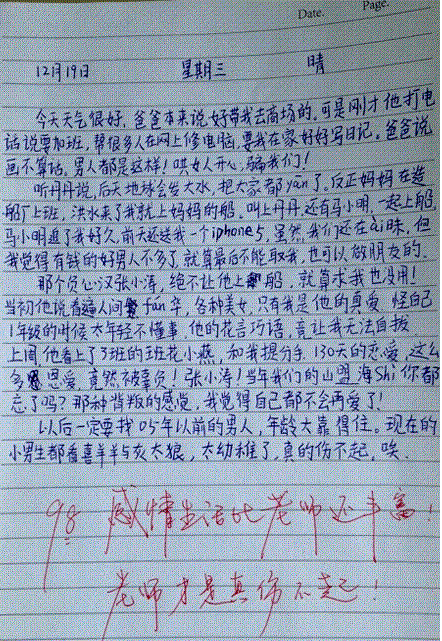 Date. Page.
12月19日 星期三 晴
今天天气很好,爸爸本来说好带我去商场的,可是刚才他打电
话说要加班,帮很多人在网上修电脑,要我在家好好写日记。爸爸说
画不算话,男人都是这样!哄女人开心,骗我们!
听丹丹说,后天地球会发大水,把大家都yān了,反正妈妈在造
船厂上班,洪水来了我就上妈妈的船。叫上丹丹,还有马小明,一起上船,
马小明追了我好久,前天还送我一个iphone5,虽然我们还在ài昧,但
我觉得有钱的好男人不多了,就算最后不能取我,也可以做朋友的。
那个负心汉张小涛,绝不让他上船,就算求我也没用!
当初他说看遍人间fán华,各种美女,只有我是他的真爱,怪自己
1年级的时候太年轻不懂事,他的花言巧语,竟让我无法自拔
上周他看上了3班的班花小燕,和我提分手,130天的恋爱,这么
多恩爱,竟然被辜负!张小涛!当年我们的山盟海Shi你都
忘了吗?那种背叛的感觉,我觉得自己都不会再爱了!
以后一定要找05年以前的男人,年龄大靠得住。现在的
小男生都看喜羊羊与灰太狼,太幼稚了,真的伤不起,唉.
98 感情生活比老师还丰富!
老师才是真伤不起!